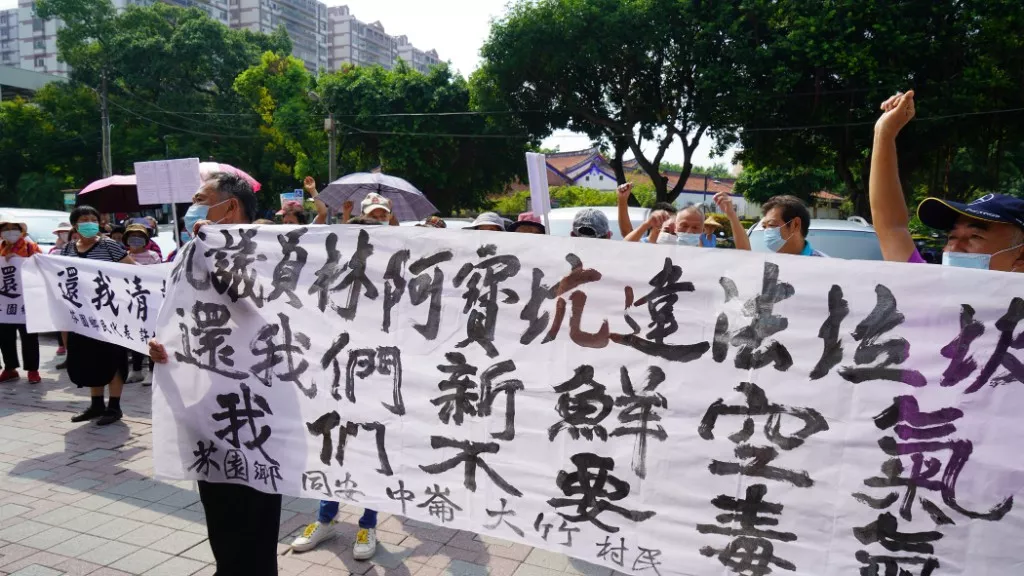 議員林阿寶坑違法垃圾
還我們新鮮空氣
我們不要毒氣
芬園鄉同安中崙大竹村民
還我清
芬園鄉民代表
還